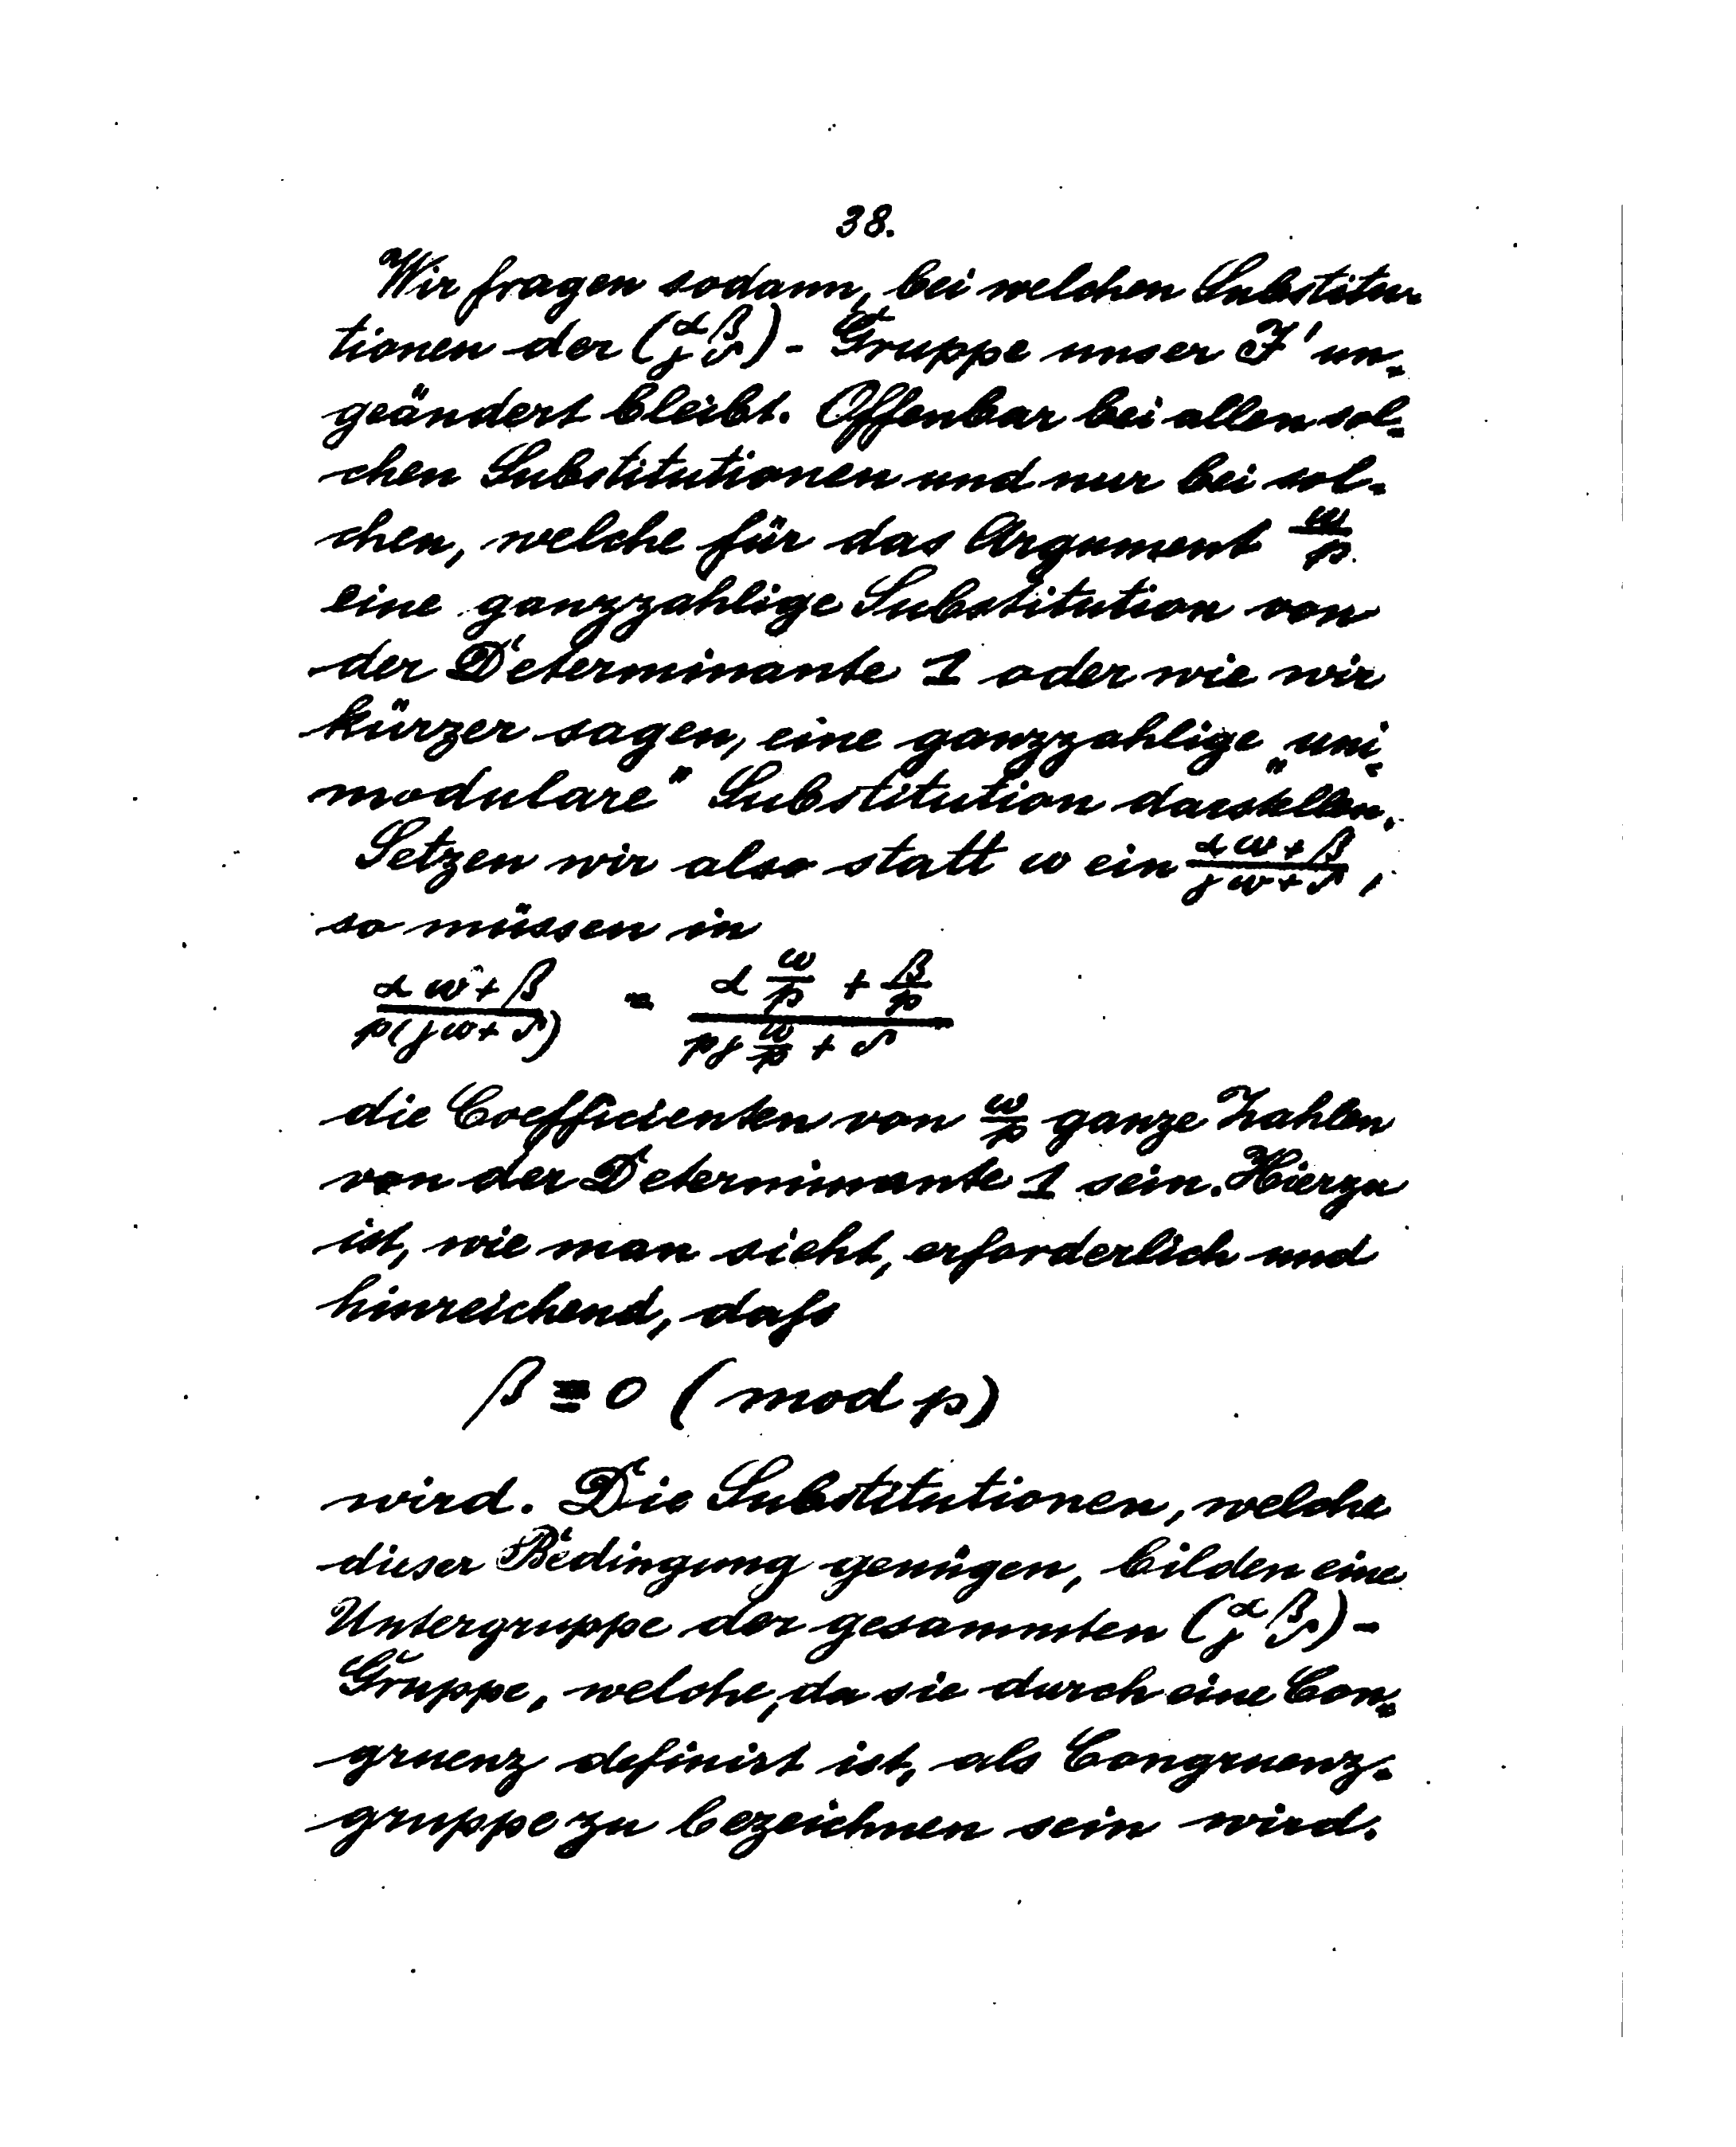 38.
Wir fragen sodann, bei welchen Substitu-
tionen der (α β / γ δ) - Gruppe unser J' un-
geändert bleibt. Offenbar bei allen sol-
chen Substitutionen und nur bei sol-
chen, welche für das Argument ω/p
eine ganzzahlige Substitution von
der Determinante 1 oder wie wir
kürzer sagen, eine ganzzahlige „uni-
modulare" Substitution darstellen.
Setzen wir also statt ω ein (αω+β)/(γω+δ),
so müssen in
(αω+β)/(p(γω+δ)) = (α ω/p + β/p)/(pγ ω/p + δ)
die Coefficienten von ω/p ganze Zahlen
von der Determinante 1 sein. Hierzu
ist, wie man sieht, erforderlich und
hinreichend, daſs
β ≡ 0 (mod p)
wird. Die Substitutionen, welche
dieser Bedingung genügen, bilden eine
Untergruppe der gesammten (α β / γ δ) -
Gruppe, welche, da sie durch eine Con-
gruenz definirt ist, als Congruenz-
gruppe zu bezeichnen sein wird.